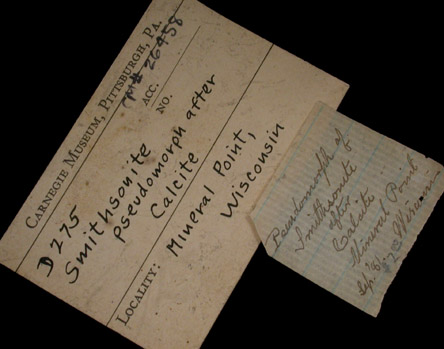 CARNEGIE MUSEUM, PITTSBURGH, PA.
CM# 26458
ACC.
NO.
D275
Smithsonite
pseudomorph after
Calcite
LOCALITY: Mineral Point,
Wisconsin
Pseudomorph of
Smithsonite
after
Calcite
Mineral Point
Wiscons